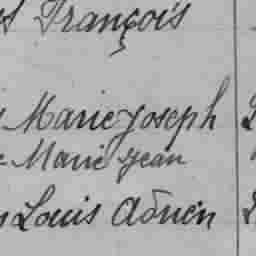 François
Marie Joseph
Marie Jean
Louis Adrien